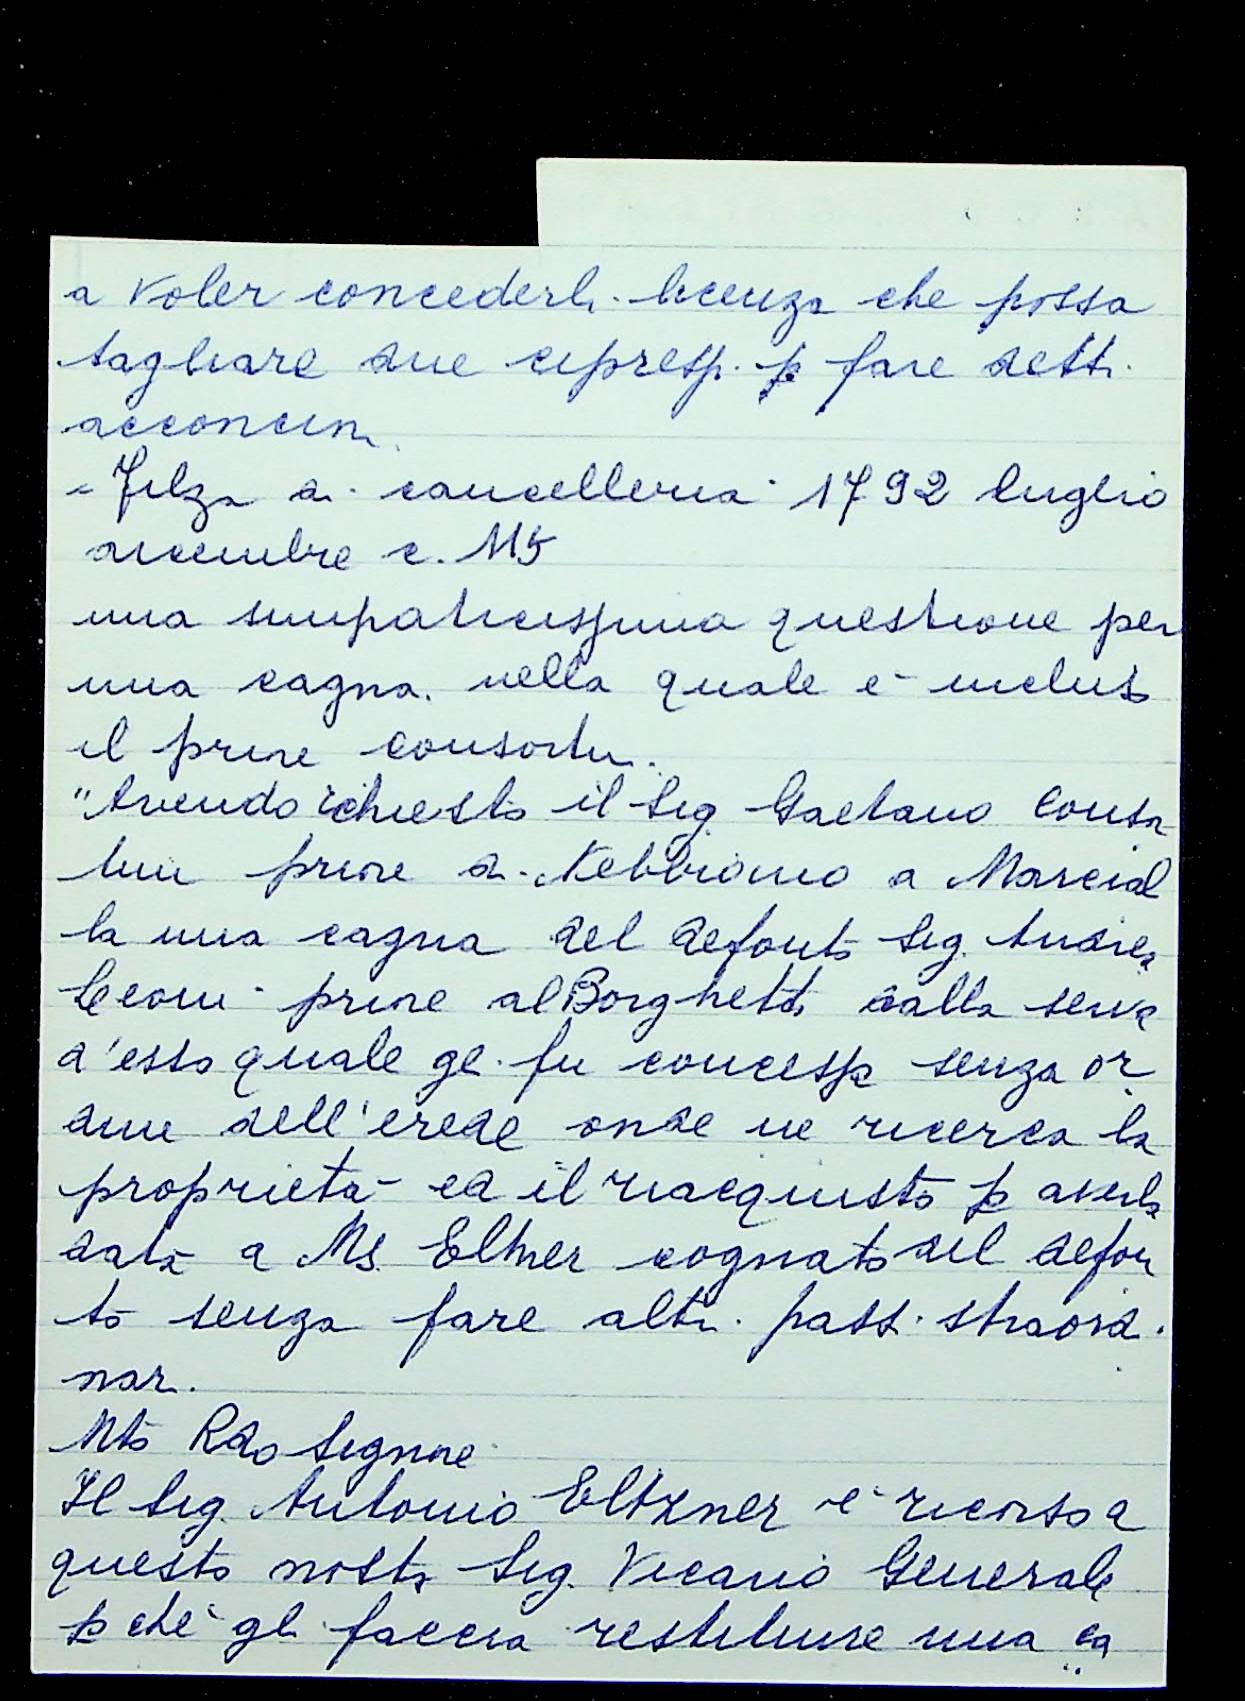 a voler concederli licenza che possa
tagliare due cipressi p fare detti
acconcimi
- Filza di cancelleria 1792 luglio
dicembre c. 115
una simpaticissima questione per
una cagna nella quale è incluso
il priore Consortini.
"Avendo richiesto il Sig. Gaetano Consor
tini priore di Nebbiano a Marcial
la una cagna del defonto Sig. Andrea
Leoni priore al Borghetto dalla serva
d'esso quale gli fu concessa senza or
dine dell'erede onde ne ricerca la
proprietà ed il riacquisto p averla
data a Ms. cognato del defon
to senza fare altri passi straord.
nari.
Mto Rdo Signore
Il Sig. Antonio è ricorso a
questo nostro Sig. Vicario Generale
p chè gli faccia restituire una ca